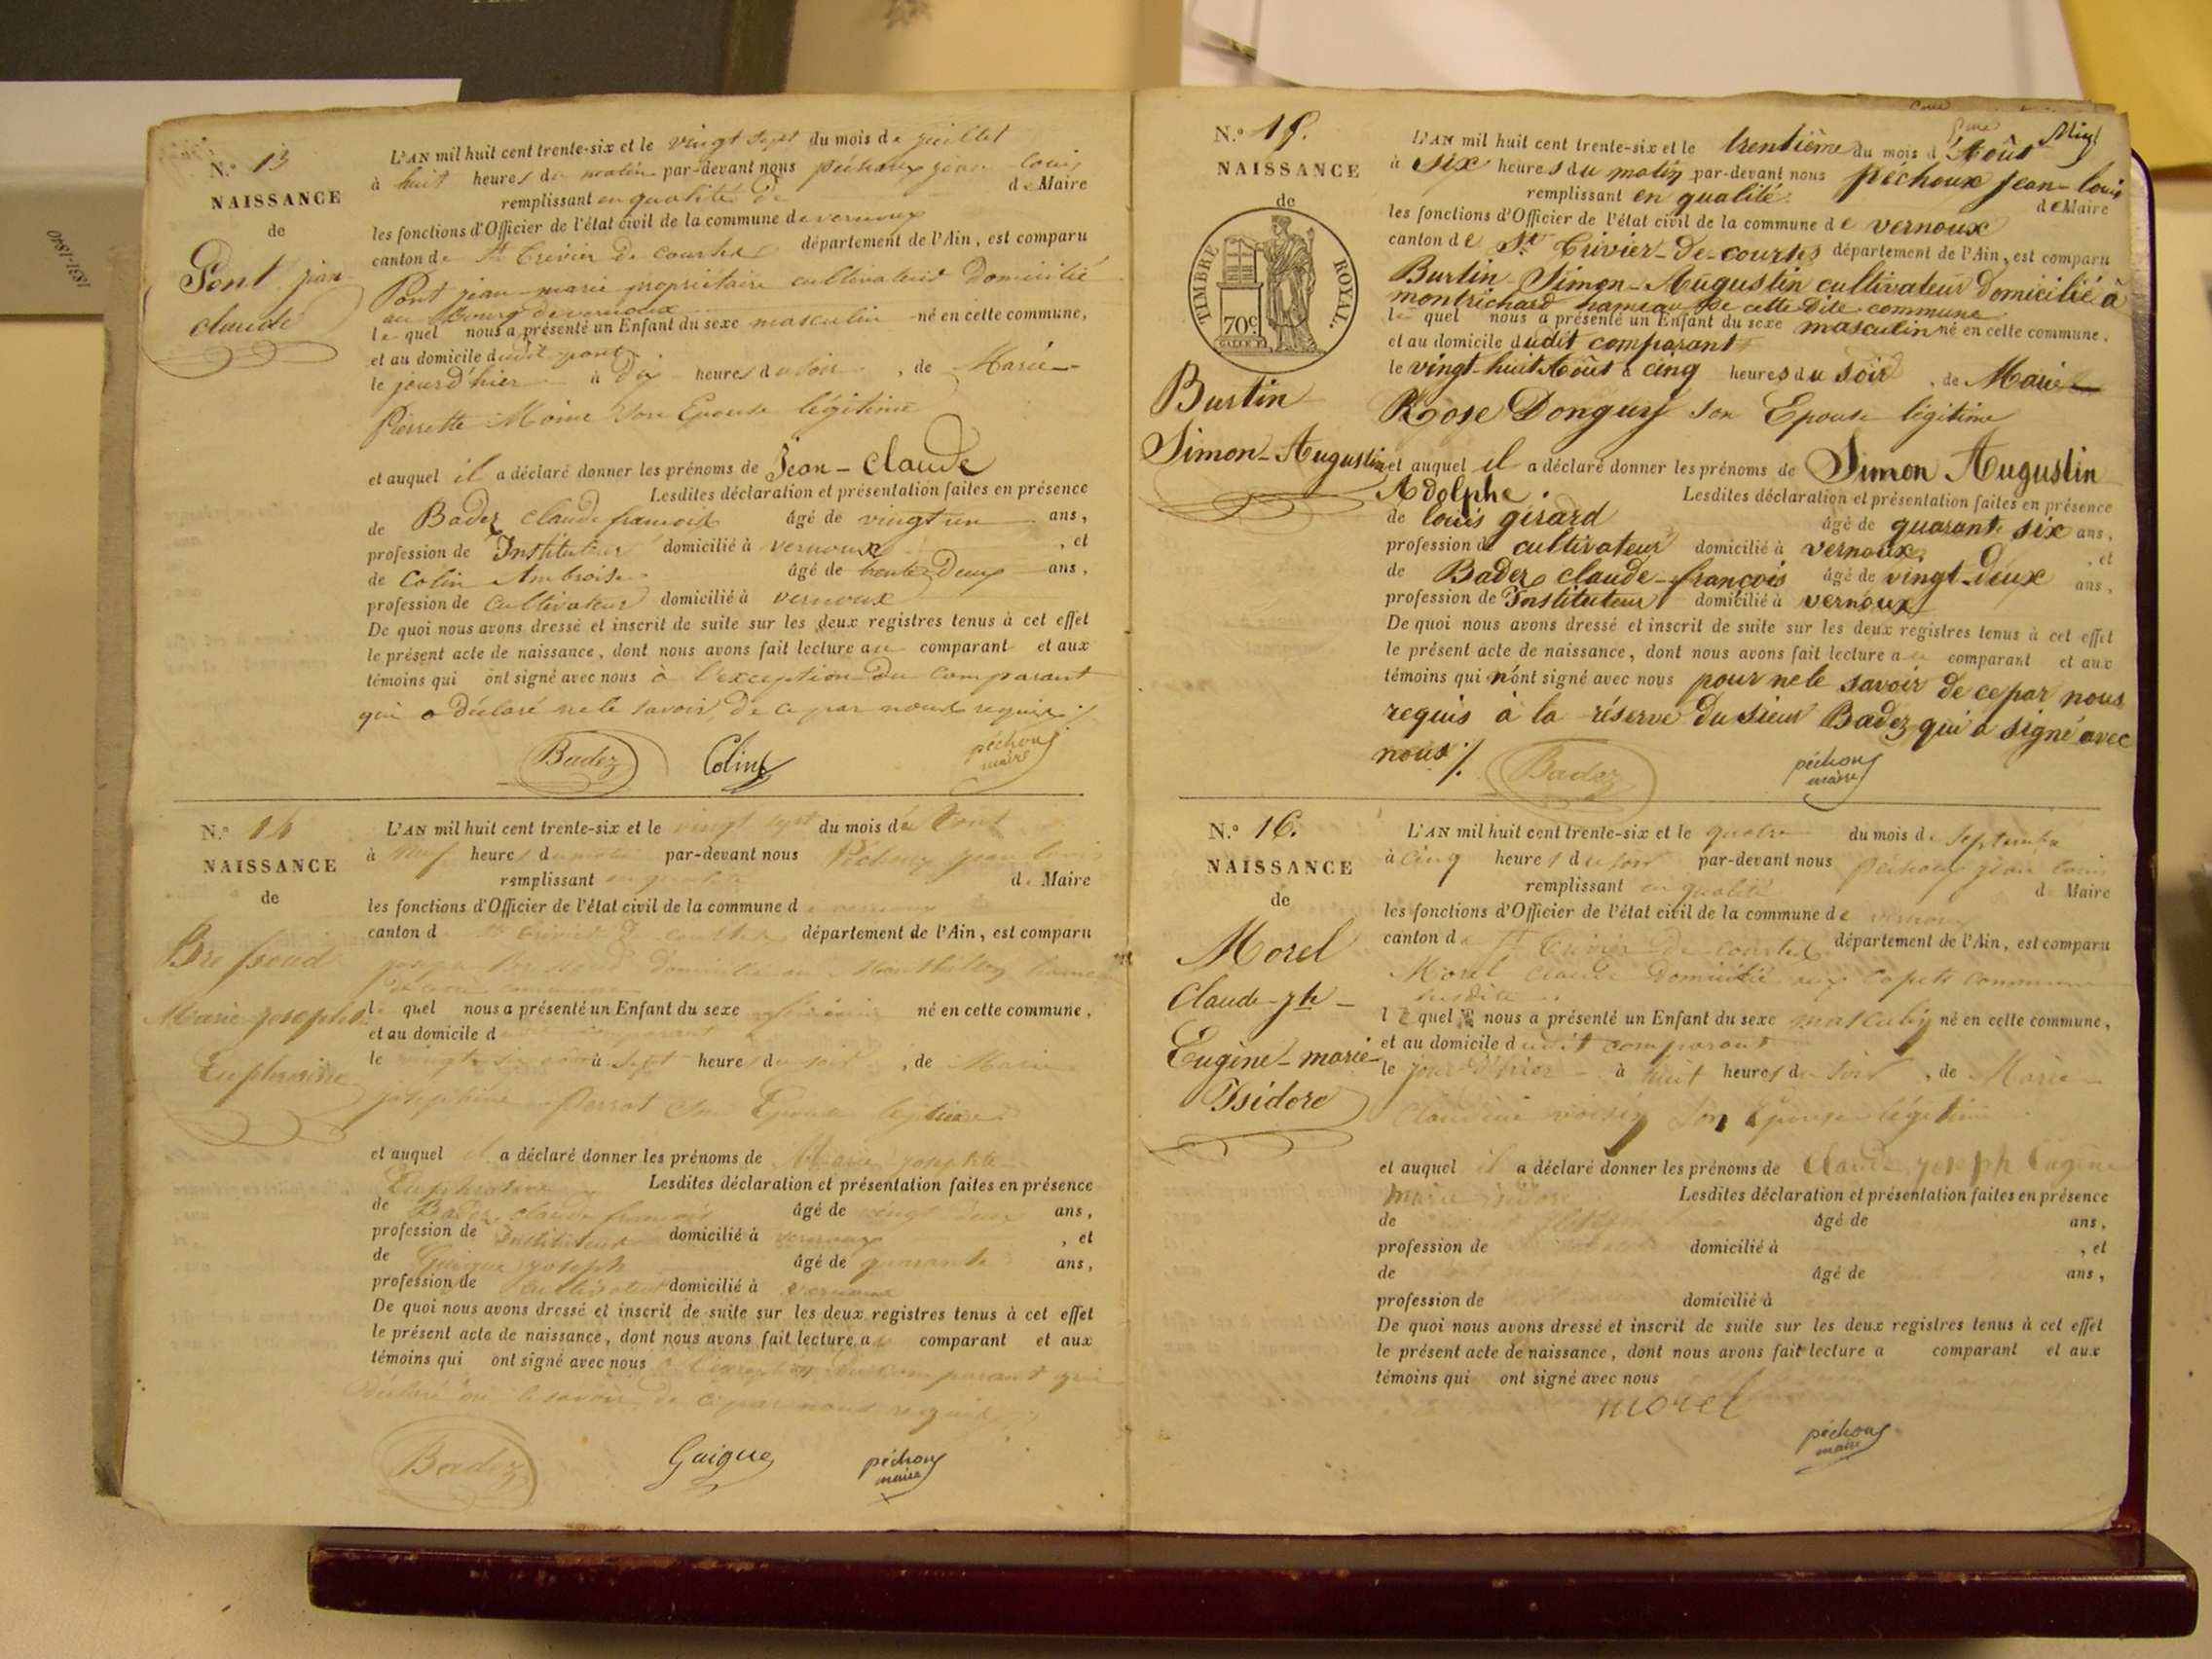 1831-1840
N.º 13
NAISSANCE
de
Pont jean
claude
L'AN mil huit cent trente-six et le vingt sept du mois de juillet
à huit heures du matin par-devant nous péchoux jean louis
remplissant en qualité de de Maire
les fonctions d'Officier de l'état civil de la commune de vernoux
canton de St trivier de courtes département de l'Ain, est comparu
Pont jean marie propriétaire cultivateur Domicilié
au Bourg de vernoux
le quel nous a présenté un Enfant du sexe masculin né en cette commune,
et au domicile dudit pont
le jourd'hier à Dix heures du soir, de Marie
Pierrette Moine son Epouse légitime
et auquel il a déclaré donner les prénoms de Jean-Claude
Lesdites déclaration et présentation faites en présence
de Badez claude francois âgé de vingt un ans,
profession de Instituteur domicilié à vernoux, et
de Colin Ambroise âgé de trente Deux ans,
profession de cultivateur domicilié à vernoux
De quoi nous avons dressé et inscrit de suite sur les deux registres tenus à cet effet
le présent acte de naissance, dont nous avons fait lecture au comparant et aux
témoins qui ont signé avec nous à l'exception Du comparant
qui a déclaré ne le savoir, de ce par nous requis ./.
Badez Colin péchoux
maire
N.º 14
NAISSANCE
de
Bressoud
Marie josephte
Euphrosine
L'AN mil huit cent trente-six et le vingt sept du mois de Aout
à neuf heures du matin par-devant nous Péchoux jean louis
remplissant en qualité de Maire
les fonctions d'Officier de l'état civil de la commune d vernoux
canton d St trivier de courtes département de l'Ain, est comparu
de cette commune
le quel nous a présenté un Enfant du sexe féminin né en cette commune,
et au domicile d
le vingt six à sept heures du soir, de Marie
josephine Perrot son Epouse légitime
et auquel il a déclaré donner les prénoms de Marie josephte
Euphrosine Lesdites déclaration et présentation faites en présence
de Badez claude francois âgé de vingt deux ans,
profession de Instituteur domicilié à vernoux, et
de Guigue joseph âgé de quarante ans,
profession de cultivateur domicilié à vernoux
De quoi nous avons dressé et inscrit de suite sur les deux registres tenus à cet effet
le présent acte de naissance, dont nous avons fait lecture a comparant et aux
témoins qui ont signé avec nous à l'exception du comparant qui
déclaré ne le savoir de ce par nous requis
Badez Guigue péchoux
maire
N.º 15.
NAISSANCE
de
TIMBRE ROYAL.
70c
Burtin
Simon-Augustin
L'AN mil huit cent trente-six et le trentième du mois d'Août
à six heures du matin par-devant nous péchoux jean-louis
remplissant en qualité de Maire
les fonctions d'Officier de l'état civil de la commune de vernoux
canton de St trivier-de-courtes département de l'Ain, est comparu
Burtin Simon-Augustin cultivateur Domicilié à
montrichard hameau de cette Dite commune
le quel nous a présenté un Enfant du sexe masculin né en cette commune,
et au domicile dudit comparant
le vingt-huit Août à cinq heures du soir, de Marie
Rose Donguy son Epouse légitime
et auquel il a déclaré donner les prénoms de Simon Augustin
Adolphe. Lesdites déclaration et présentation faites en présence
de louis girard âgé de quarante six ans,
profession de cultivateur domicilié à vernoux, et
de Badez claude-françois âgé de vingt-deux ans,
profession de Instituteur domicilié à vernoux
De quoi nous avons dressé et inscrit de suite sur les deux registres tenus à cet effet
le présent acte de naissance, dont nous avons fait lecture au comparant et aux
témoins qui n'ont signé avec nous pour ne le savoir de ce par nous
requis à la réserve Du sieur Badez qui a signé avec
nous ./.
Badez péchoux
maire
N.º 16.
NAISSANCE
de
Morel
Claude-jph-
Eugène-marie
Isidore
L'AN mil huit cent trente-six et le quatre du mois de septembre
à cinq heures du soir par-devant nous péchoux jean louis
remplissant en qualité d Maire
les fonctions d'Officier de l'état civil de la commune de vernoux
canton de St trivier de courtes département de l'Ain, est comparu
Morel claude Domicilié aux Copets commune
susdite
le quel nous a présenté un Enfant du sexe masculin né en cette commune,
et au domicile dudit comparant
le jour d'hier à huit heures du soir, de Marie
Claudine voisin son épouse légitime
et auquel il a déclaré donner les prénoms de Claude joseph Eugène
marie isidore Lesdites déclaration et présentation faites en présence
de âgé de ans,
profession de domicilié à , et
de âgé de ans,
profession de domicilié à
De quoi nous avons dressé et inscrit de suite sur les deux registres tenus à cet effet
le présent acte de naissance, dont nous avons fait lecture a comparant et aux
témoins qui ont signé avec nous
morel
péchoux
maire